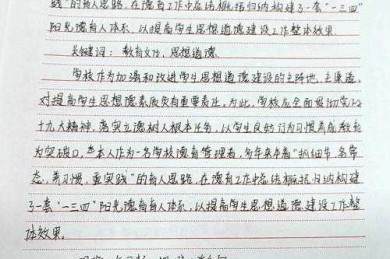 线"的育人思路，在德育工作中总结概括归纳构建了一套"一三四"
阳光德育育人体系，以提高学生思想道德建设工作整体效果。
关键词：教育文化，思想道德
学校作为加强和改进学生思想道德建设的主阵地、主渠道，
对提高学生思想德素质负有重要责任。为此，学校应全面贯彻党的
十九大精神，落实立德树人根本任务，以学生良好行为习惯养成教育
为突破口，本人作为一名学校德育管理者，多年来本着"抓细节、名常
态、养习惯、重实践"的育人思路，在德育工作中总结概括归纳构建
了一套"一三四"阳光德育育人体系，以提高学生思想道德建设工作整
体效果。